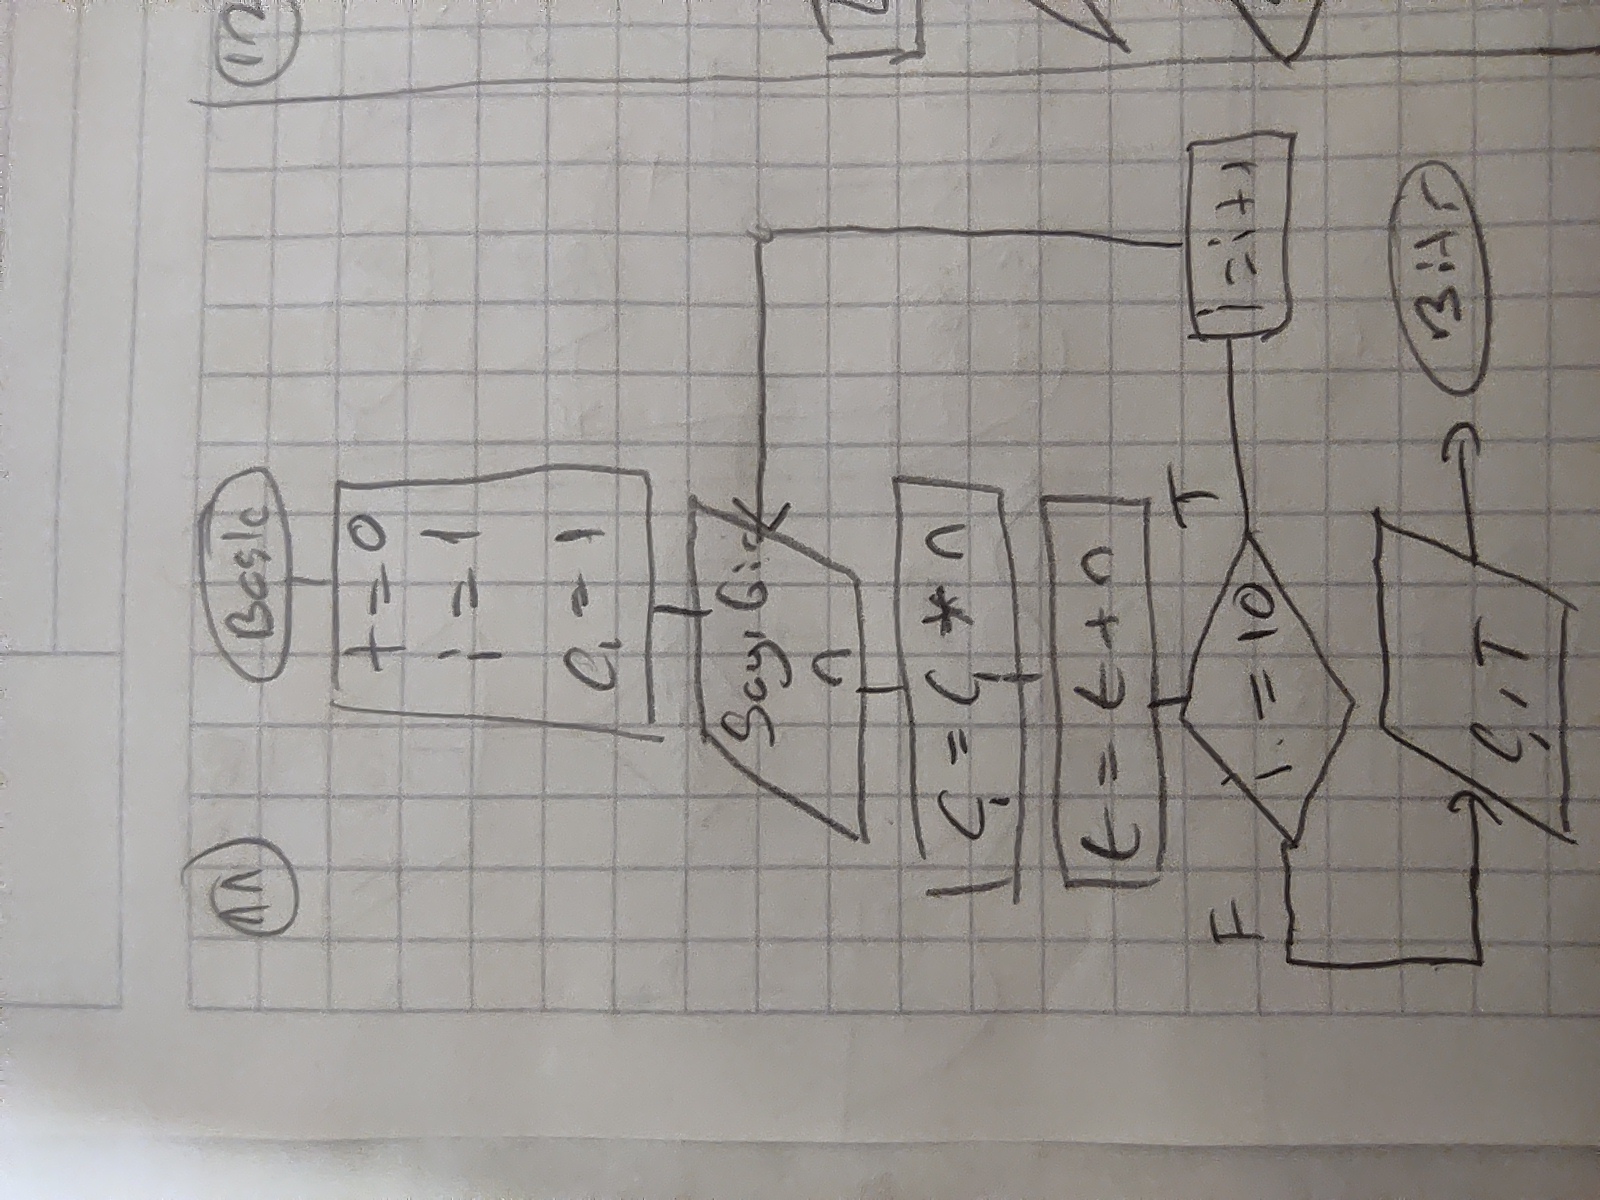 11
Başla
12
t = 0
i = 1
Ç = 1
Sayı Gir
n
Ç = Ç * n
t = t + n
F
T
i = 10
i = i + 1
Ç, T
Bitir